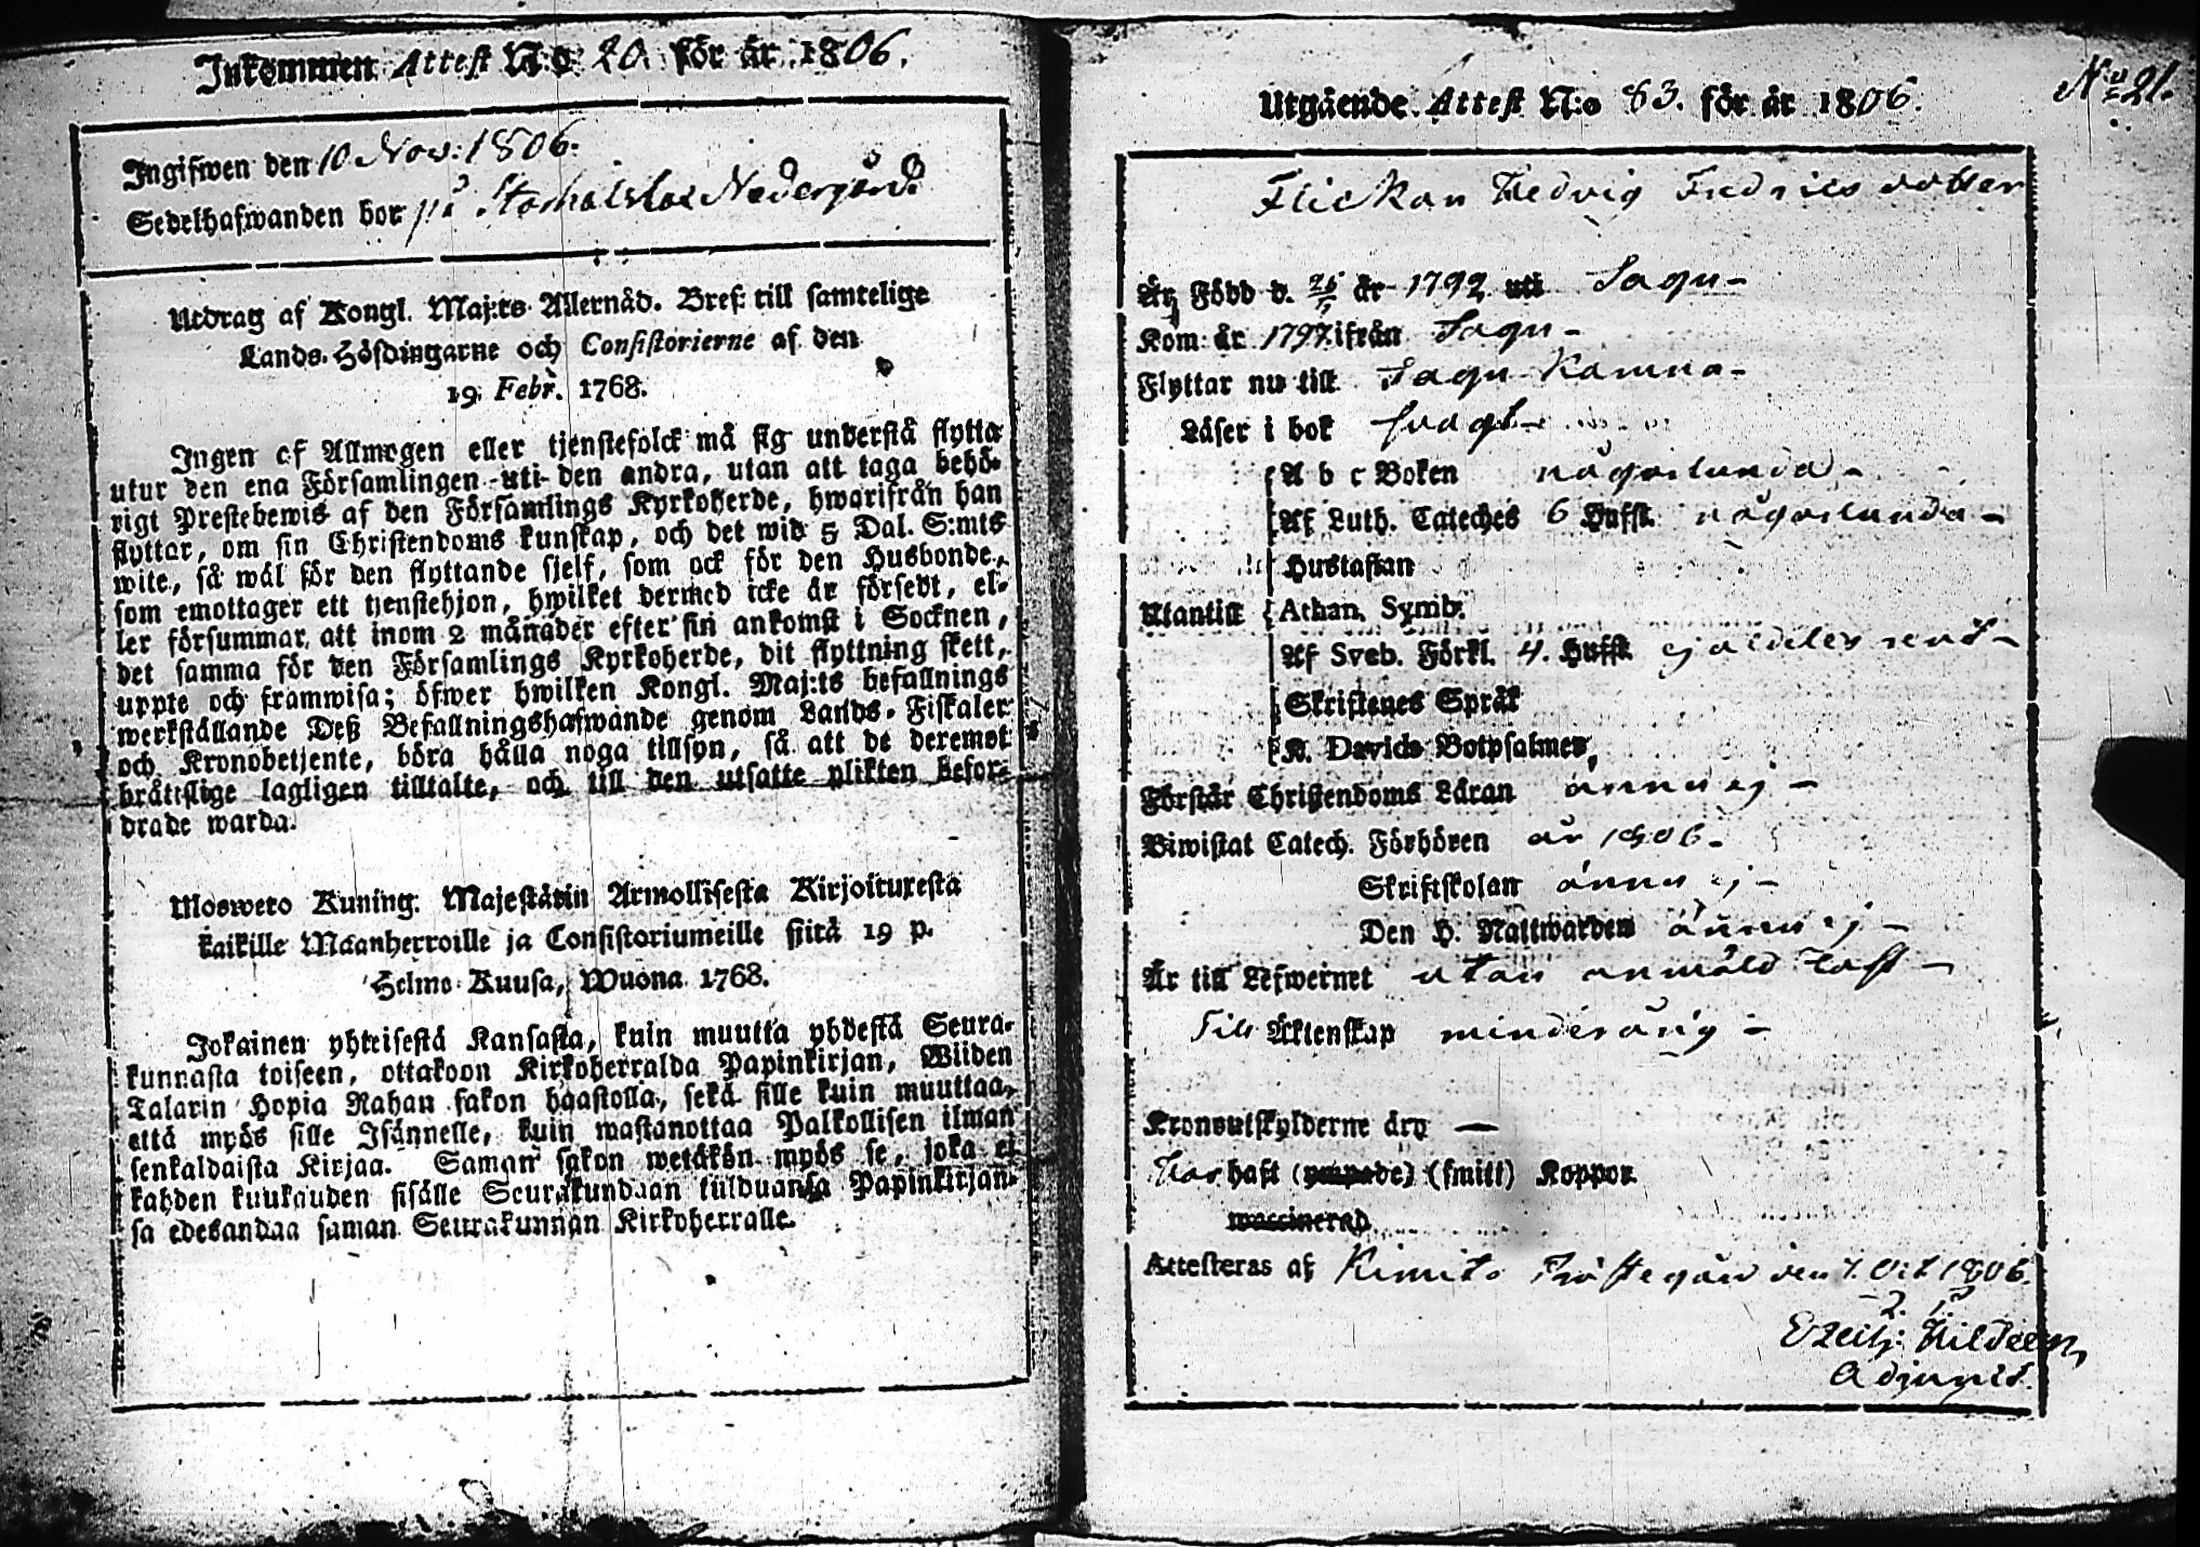 Inkommen Attest N:o 20. för år 1806.
Ingifwen den 10 Nov: 1806.
Sedelhafwanden bor på Nedergård
Utdrag af Kongl. Maj:ts Allernåd. Bref till samtelige
Lands-Höfdingarne och Consistorierne af den
19. Febr. 1768.
Ingen af Allmogen eller tjenstefolck må sig understå flytta
utur den ena Församlingen uti den andra, utan att taga behö-
rigt Prestebewis af den Församlings Kyrkoherde, hwarifrån han
flyttar, om sin Christendoms kunskap, och det wid 5 Dal. S:mts
wite, så wäl för den flyttande sjelf, som ock för den Husbonde,
som emottager ett tjenstehjon, hwilket dermed icke är försedt, el-
ler försummar, att inom 2 månader efter sin ankomst i Socknen,
det samma för den Församlings Kyrkoherde, dit flyttning skett,
uppte och framwisa; öfwer hwilken Kongl. Maj:ts befallnings
werkställande Deß Befallningshafwande genom Lands-Fiskaler
och Kronobetjente, böra hålla noga tillsyn, så att de deremot
bråttslige lagligen tilltalte, och till den utsatte plikten befor-
drade warda.
Uloswero Kuning. Majestätin Armollisesta Kirjoituxesta
kaikille Maanherroille ja Consistoriumeille siitä 19 p.
Helme Kuusa, Wuona 1768.
Jokainen yhteisestä Kansasta, kuin muutta yhdestä Seura-
kunnasta toiseen, ottakoon Kirkoherralda Papinkirjan, Wiiden
Talarin Hopia Rahan sakon haastolla, sekä sille kuin muuttaa,
että myös sille Isännelle, kuin wastanottaa Palkollisen ilman
senkaldaista Kirjaa. Saman sakon wetäkön myös se, joka ei
kahden kuukauden sisälle Seurakundaan tulduansa Papinkirjan-
sa edesandaa saman Seurakunnan Kirkoherralle.
Utgående Attest N:o 83. för år 1806.
No 21.
Flickan Hedvig Fredricsdotter
Är Född d. år 1792 uti Sagu-
Kom år 1797. ifrån Sagu-
Flyttar nu till Sagu Kamna-
Läser i bok svagt-
A b c Boken någorlunda-
Af Luth. Cateches 6 Hufst. någorlunda-
Hustaflan
Utantill Athan. Symb.
Af Sveb. Förkl. 4. Hufst. ej aldeles rent-
Skriftenes Språk
K. Davids Botpsalmer,
Förstår Christendoms Läran ännu ej-
Biwistat Catech. Förhören år 1806.
Skriftskolan ännu ej-
Den H. Nattwarden ännu ej-
Är till Lefwernet utan anmäld last-
Till Äktenskap minderårig-
Kronoutskylderne äro —
Har haft (ympade) (smitt) Koppor
waccinerad
Attesteras af Kimito Prästegård den 7. Oct 1806.
Adjunct.